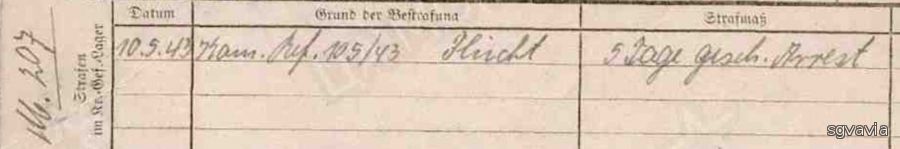 Datum Grund der Bestrafung Strafmaß
Strafen
im Kr.-Gef.-Lager
10.5.43 Kom. Bef. 105/43 Flucht 5 Tage gesch. Arrest
207
sgvavia